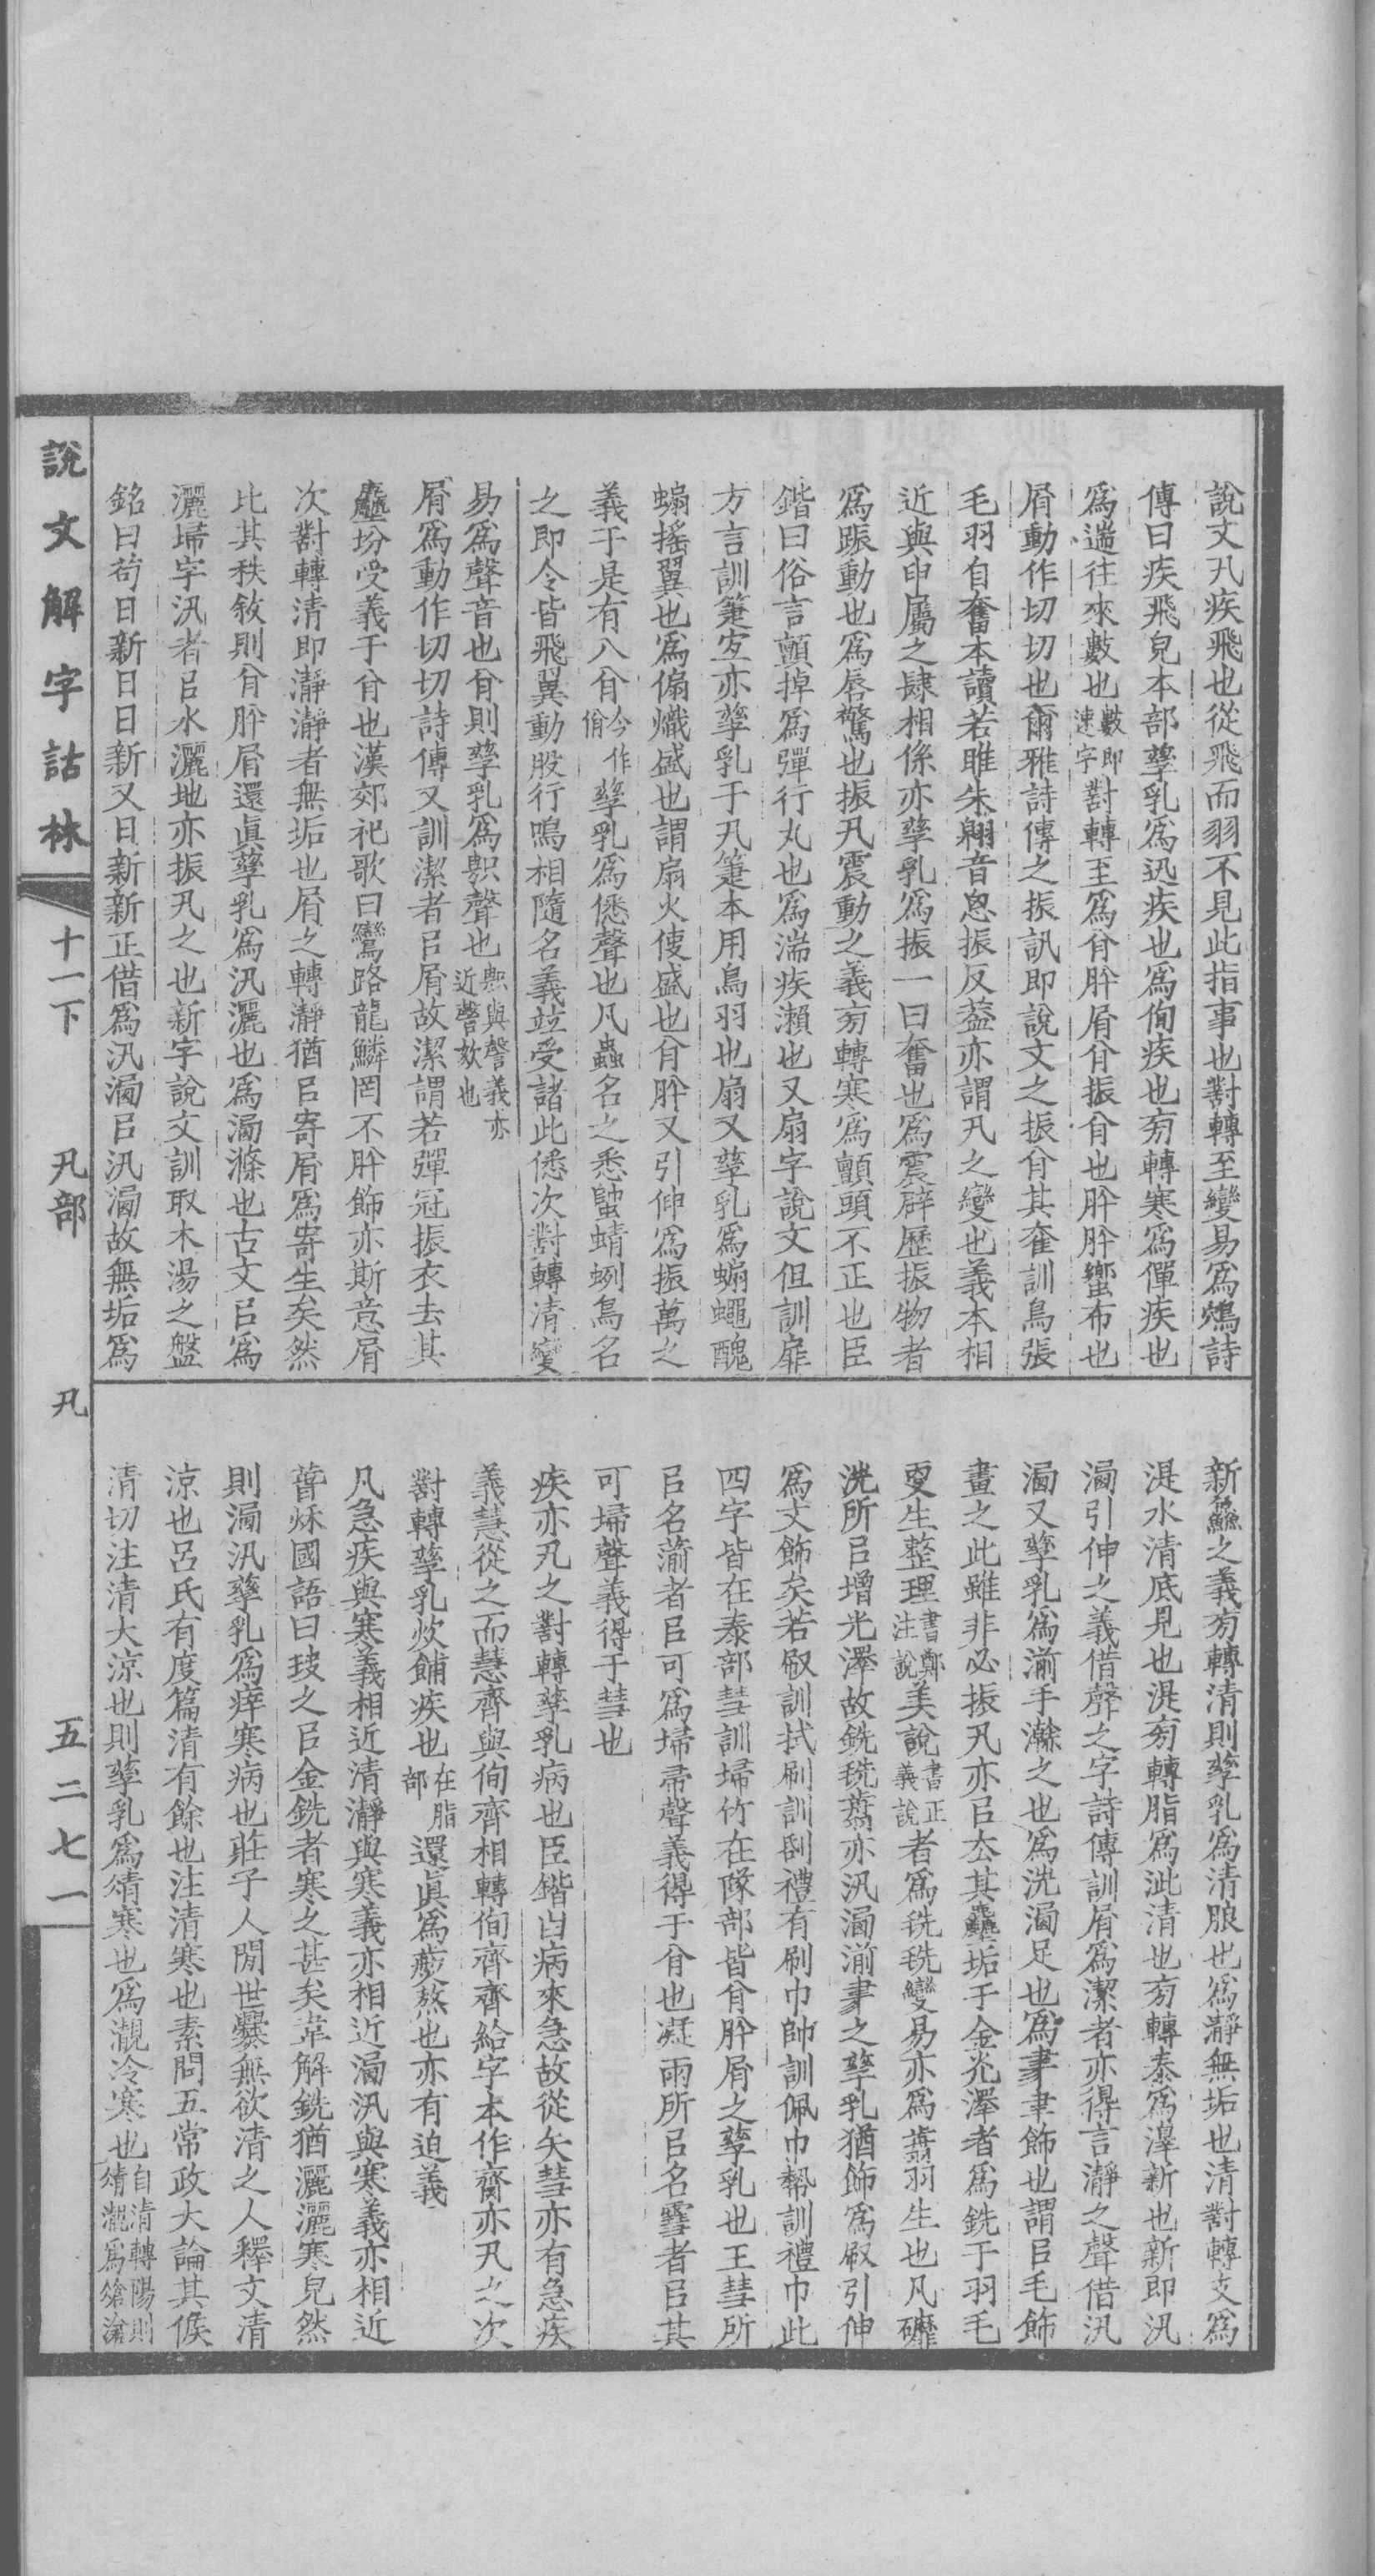 說文卂疾飛也從飛而羽不見此指事也對轉至變易爲鴪詩
傳曰疾飛皃本部孳乳爲迅疾也爲侚疾也旁轉寒爲僤疾也
爲遄往來數也數即速字對轉至爲㑜肸屑㑜振㑜也肸肸蠁布也
屑動作切切也爾雅詩傳之振訊即說文之振㑜其奞訓鳥張
毛羽自奮本讀若睢朱翱音息振反蓋亦謂卂之變也義本相
近與申屬之肄相係亦孳乳爲振一曰奮也爲震辟歷振物者
爲踬動也爲唇驚也振卂震動之義旁轉寒爲顫頭不正也臣
鍇曰俗言顫掉爲彈行丸也爲湍疾瀨也又扇字說文但訓扉
方言訓箑宐亦孳乳于卂箑本用鳥羽也扇又孳乳爲蝙蠅醜
蝙搖翼也爲傓熾盛也謂扇火使盛也㑜肸又引伸爲振萬之
義于是有八㑜今作佾孳乳爲僁聲也凡蟲名之悉蟀蜻蛚鳥名
之即令皆飛翼動股行鳴相隨名義竝受諸此僁次對轉清變
易爲聲音也㑜則孳乳爲㰟聲也㰟與謦義亦近謦欬也
屑爲動作切切詩傳又訓潔者㠯屑故潔謂若彈冠振衣去其
塵坋受義于㑜也漢郊祀歌曰鸞路龍鱗罔不肸飾亦斯意屑
次對轉清即瀞瀞者無垢也屑之轉瀞猶㠯寄屑爲寄生矣然
比其秩敘則㑜肸屑還眞孳乳爲汛灑也爲洒滌也古文㠯爲
灑埽字汛者㠯水灑地亦振卂之也新字說文訓取木湯之盤
銘曰苟日新日日新又日新新正借爲汛洒㠯汛洒故無垢爲
新鱻之義旁轉清則孳乳爲清朖也爲瀞無垢也清對轉支爲
湜水清底見也湜旁轉脂爲泚清也旁轉泰爲滜新也新即汛
洒引伸之義借聲之字詩傳訓屑爲潔者亦得言瀞之聲借汛
洒又孳乳爲湔手瀚之也爲洗洒足也爲𦘔聿飾也謂㠯毛飾
畫之此雖非必振卂亦㠯厺其塵垢于金光澤者爲銑于羽毛
更生整理書鄭注說美說書正義說者爲毨毨變易亦爲翦羽生也凡礲
洗所㠯增光澤故銑毨翦亦汛洒湔𦘔之孳乳猶飾爲㕞引伸
爲文飾矣若㕞訓拭刷訓刮禮有刷巾帥訓佩巾㡇訓禮巾此
四字皆在泰部彗訓埽竹在隊部皆㑜肸屑之孳乳也王彗所
㠯名葥者㠯可爲埽帚聲義得于㑜也凝雨所㠯名䨮者㠯其
可埽聲義得于彗也
疾亦卂之對轉孳乳病也臣鍇曰病來急故從矢彗亦有急疾
義慧從之而慧齊與侚齊相轉侚齊齊給字本作齌亦卂之次
對轉孳乳炊餔疾也在脂部還眞爲㷅熬也亦有迫義
凡急疾與寒義相近清瀞與寒義亦相近洒汛與寒義亦相近
䓤秌國語曰玦之㠯金銑者寒之甚矣韋解銑猶灑灑寒皃然
則洒汛孳乳爲痒寒病也莊子人閒世爨無欲清之人釋文清
涼也呂氏有度篇清有餘也注清寒也素問五常政大論其候
清切注清大涼也則孳乳爲凊寒也爲瀙冷寒也自清轉陽則凊瀙爲滄凔
說文解字詁林 十一下 卂部 卂 五二七一